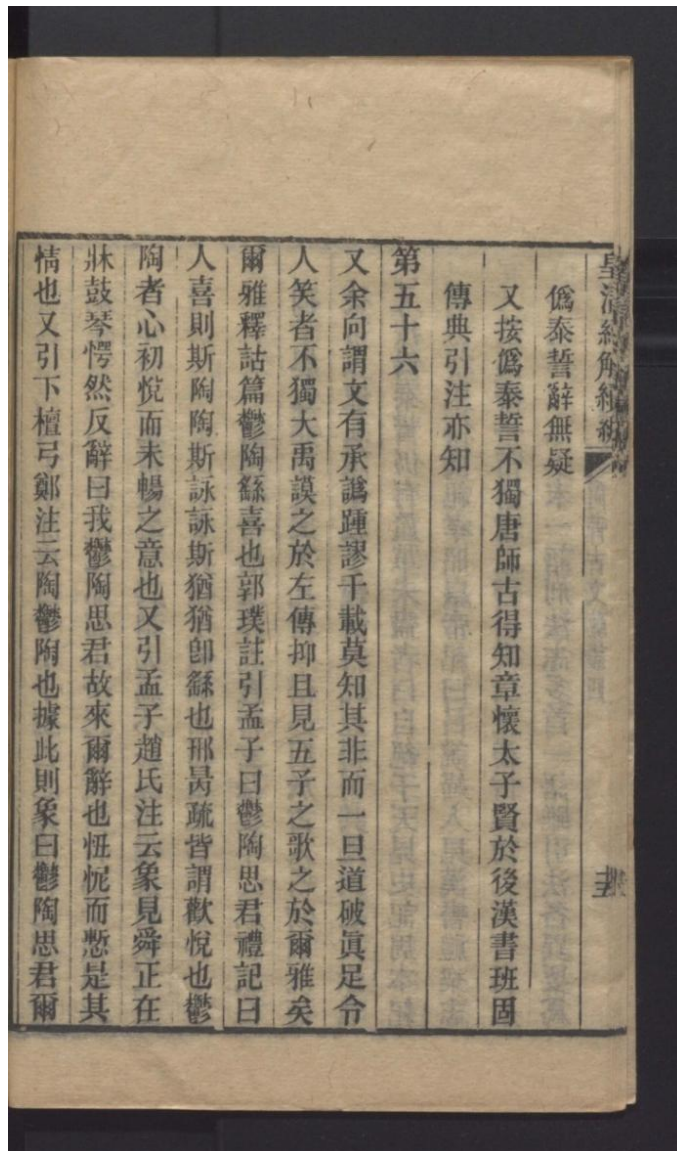 皇清經解續編
偽泰誓辭無疑
又按偽泰誓不獨唐師古得知章懷太子賢於後漢書班固
傳典引注亦知
第五十六
又余向謂文有承譌踵謬千載莫知其非而一旦道破眞足令
人笑者不獨大禹謨之於左傳抑且見五子之歌之於爾雅矣
爾雅釋詁篇鬱陶繇喜也郭璞註引孟子曰鬱陶思君禮記曰
人喜則斯陶陶斯詠詠斯猶猶卽繇也邢昺疏皆謂歡悅也鬱
陶者心初悅而未暢之意也又引孟子趙氏注云象見舜正在
牀鼓琴愕然反辭曰我鬱陶思君故來爾辭也忸怩而慙是其
情也又引下檀弓鄭注云陶鬱陶也據此則象曰鬱陶思君爾